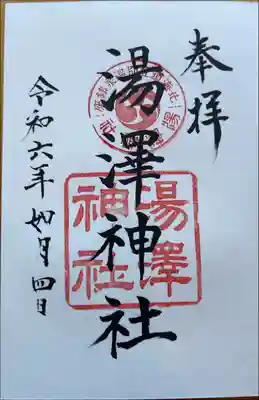 奉拝
湯澤神社
湯澤
神社
令和六年如月四日